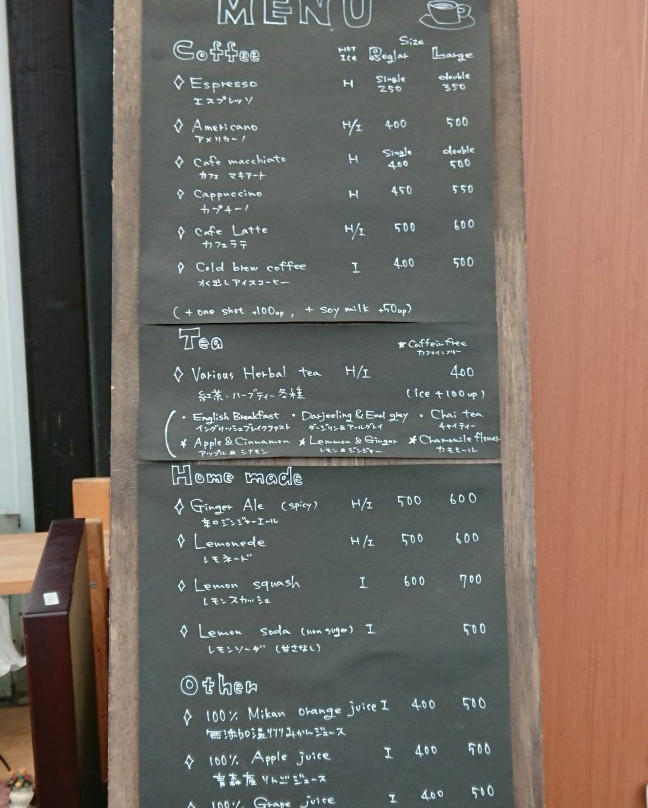 MENU
Coffee HOT Ice Size Reglar Large
Espresso H Single 250 double 350
エスプレッソ
Americano H/I 400 500
アメリカーノ
Cafe macchiato H Single 400 double 500
カフェ マキアート
Cappuccino H 450 550
カプチーノ
Cafe Latte H/I 500 600
カフェラテ
Cold brew coffee I 400 500
水出しアイスコーヒー
(+one shot +100up, + soy milk +50up)
Tea ★Caffein free
カフェインフリー
Various Herbal tea H/I 400
紅茶・ハーブティー各種 (Ice +100up)
・English Breakfast ・Darjeeling & Earl grey ・Chai tea
イングリッシュブレイクファスト ダージリン&アールグレイ チャイティー
★Apple & Cinnamon ★Lemmon & Ginger ★Chamomile flower
アップル&シナモン レモン&ジンジャー カモミール
Home made
Ginger Ale (spicy) H/I 500 600
辛口ジンジャーエール
Lemonede H/I 500 600
レモネード
Lemon squash I 600 700
レモンスカッシュ
Lemon soda (non suger) I 500
レモンソーダ (甘さなし)
Other
100% Mikan orange juice I 400 500
無添加温州みかんジュース
100% Apple juice I 400 500
青森産りんごジュース
100% Grape juice I 400 500